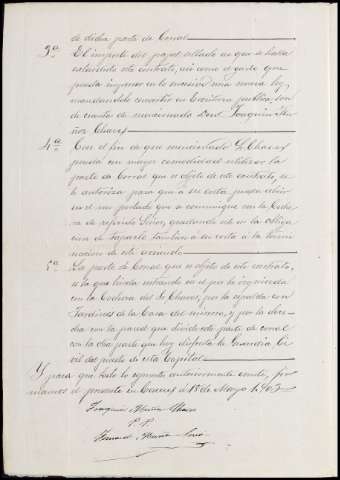 de dicha parte de Corral
3ª El importe del papel sellado en que se halla
extendido este contrato, así como el gasto que
pueda ingenar en lo sucesivo una nueva ley,
mandandole convertir en Escritura publica, son
de cuenta de mencionado Don Joaquin Mu-
ñoz Chaves
4ª Con el fin de que mencionado Sr. Chaves
pueda con mayor comodidad utilizar la
parte de Corral que es objeto de este contrato, se
le autoriza para que a su costa pueda abrir
en el un portado que se comunique con la Coche-
ra de referido Señor, quedando este en la obliga-
cion de taparlo tambien a su costa a la termi-
nacion de este acuerdo
5ª La parte de Corral que es objeto de este contrato,
es la que linda entrando en el por la izquierda
con la Cochera del Sr Chaves, por la espalda con
Jardines de la Casa del mismo, y por la dere-
cha con la pared que divide esta parte de corral
con la otra parte que hoy disfruta la Guardia Ci-
vil del puesto de esta Capital
Y para que todo lo expuesto anteriormente conste, fir-
mamos el presente en Caceres a 15 de Mayo 1,903
Joaquin Muñoz Chaves
P. P.